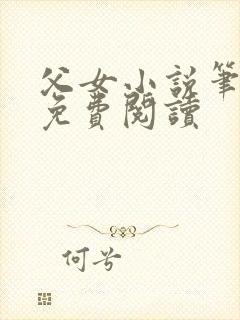 父女小說筆
免費閱讀
何兮